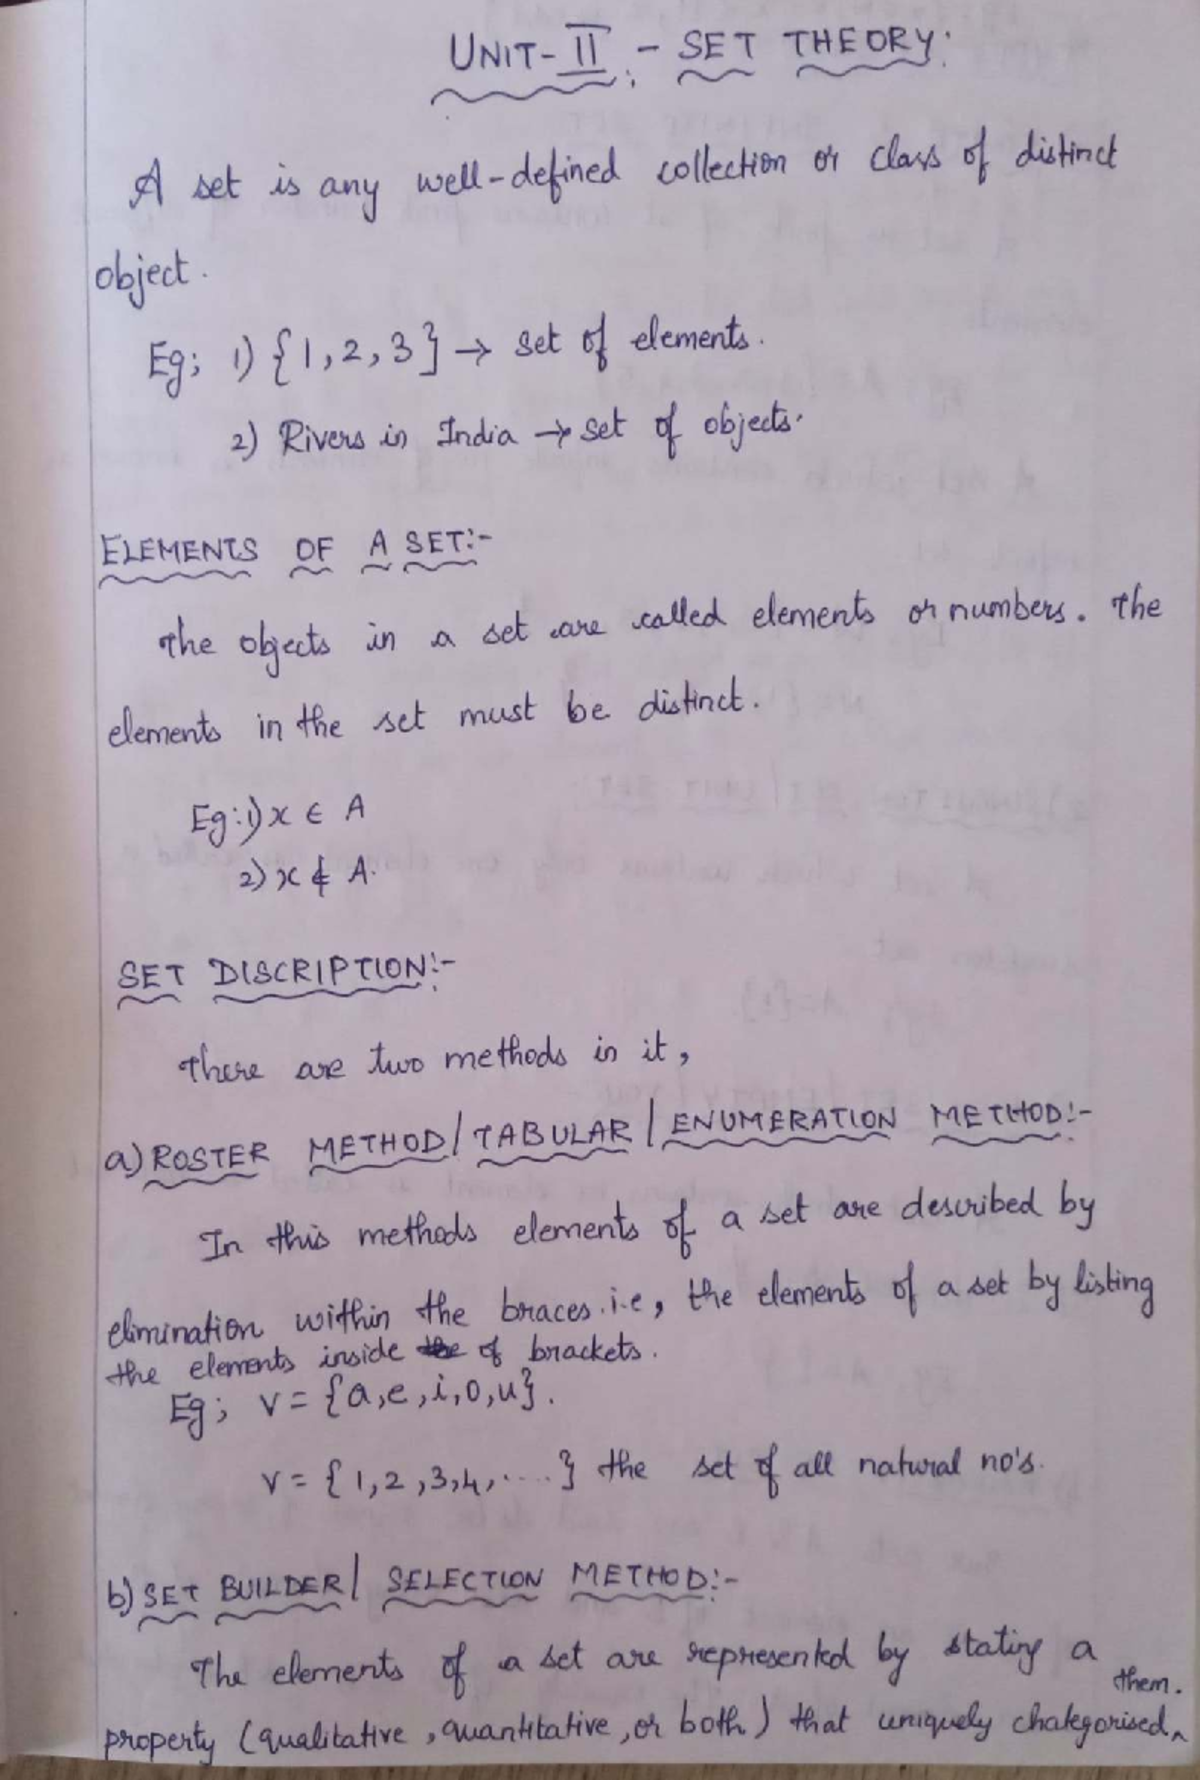 UNIT-II :- SET THEORY:
A set is any well-defined collection or class of distinct
object.
Eg; 1) {1,2,3} → set of elements.
2) Rivers in India → set of objects.
ELEMENTS OF A SET:-
The objects in a set are called elements or numbers. The
elements in the set must be distinct.
Eg:1) x ∈ A
2) x ∉ A.
SET DISCRIPTION:-
There are two methods in it,
a) ROSTER METHOD/ TABULAR / ENUMERATION METHOD:-
In this methods elements of a set are described by
elimination within the braces. i.e, the elements of a set by listing
the elements inside the of brackets.
Eg; V = {a,e,i,o,u}.
V = {1,2,3,4,.....} the set of all natural no's.
b) SET BUILDER/ SELECTION METHOD:-
The elements of a set are represented by stating a
property (qualitative, quantitative, or both) that uniquely chategorised them.